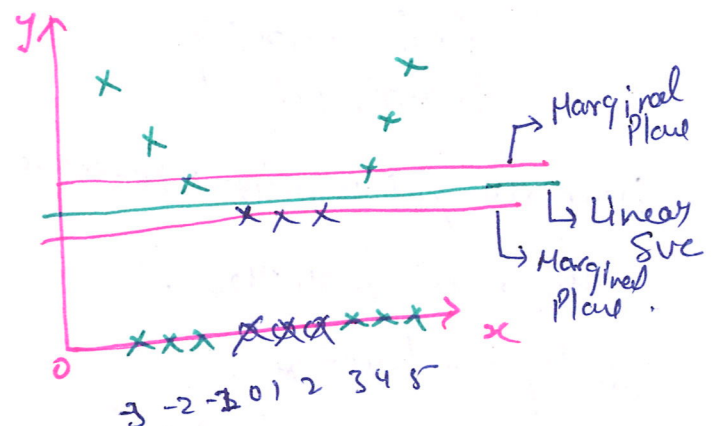 y
Marginal
Plane
Linear
SVC
Marginal
Plane.
x
0
-3 -2 -1 0 1 2 3 4 5